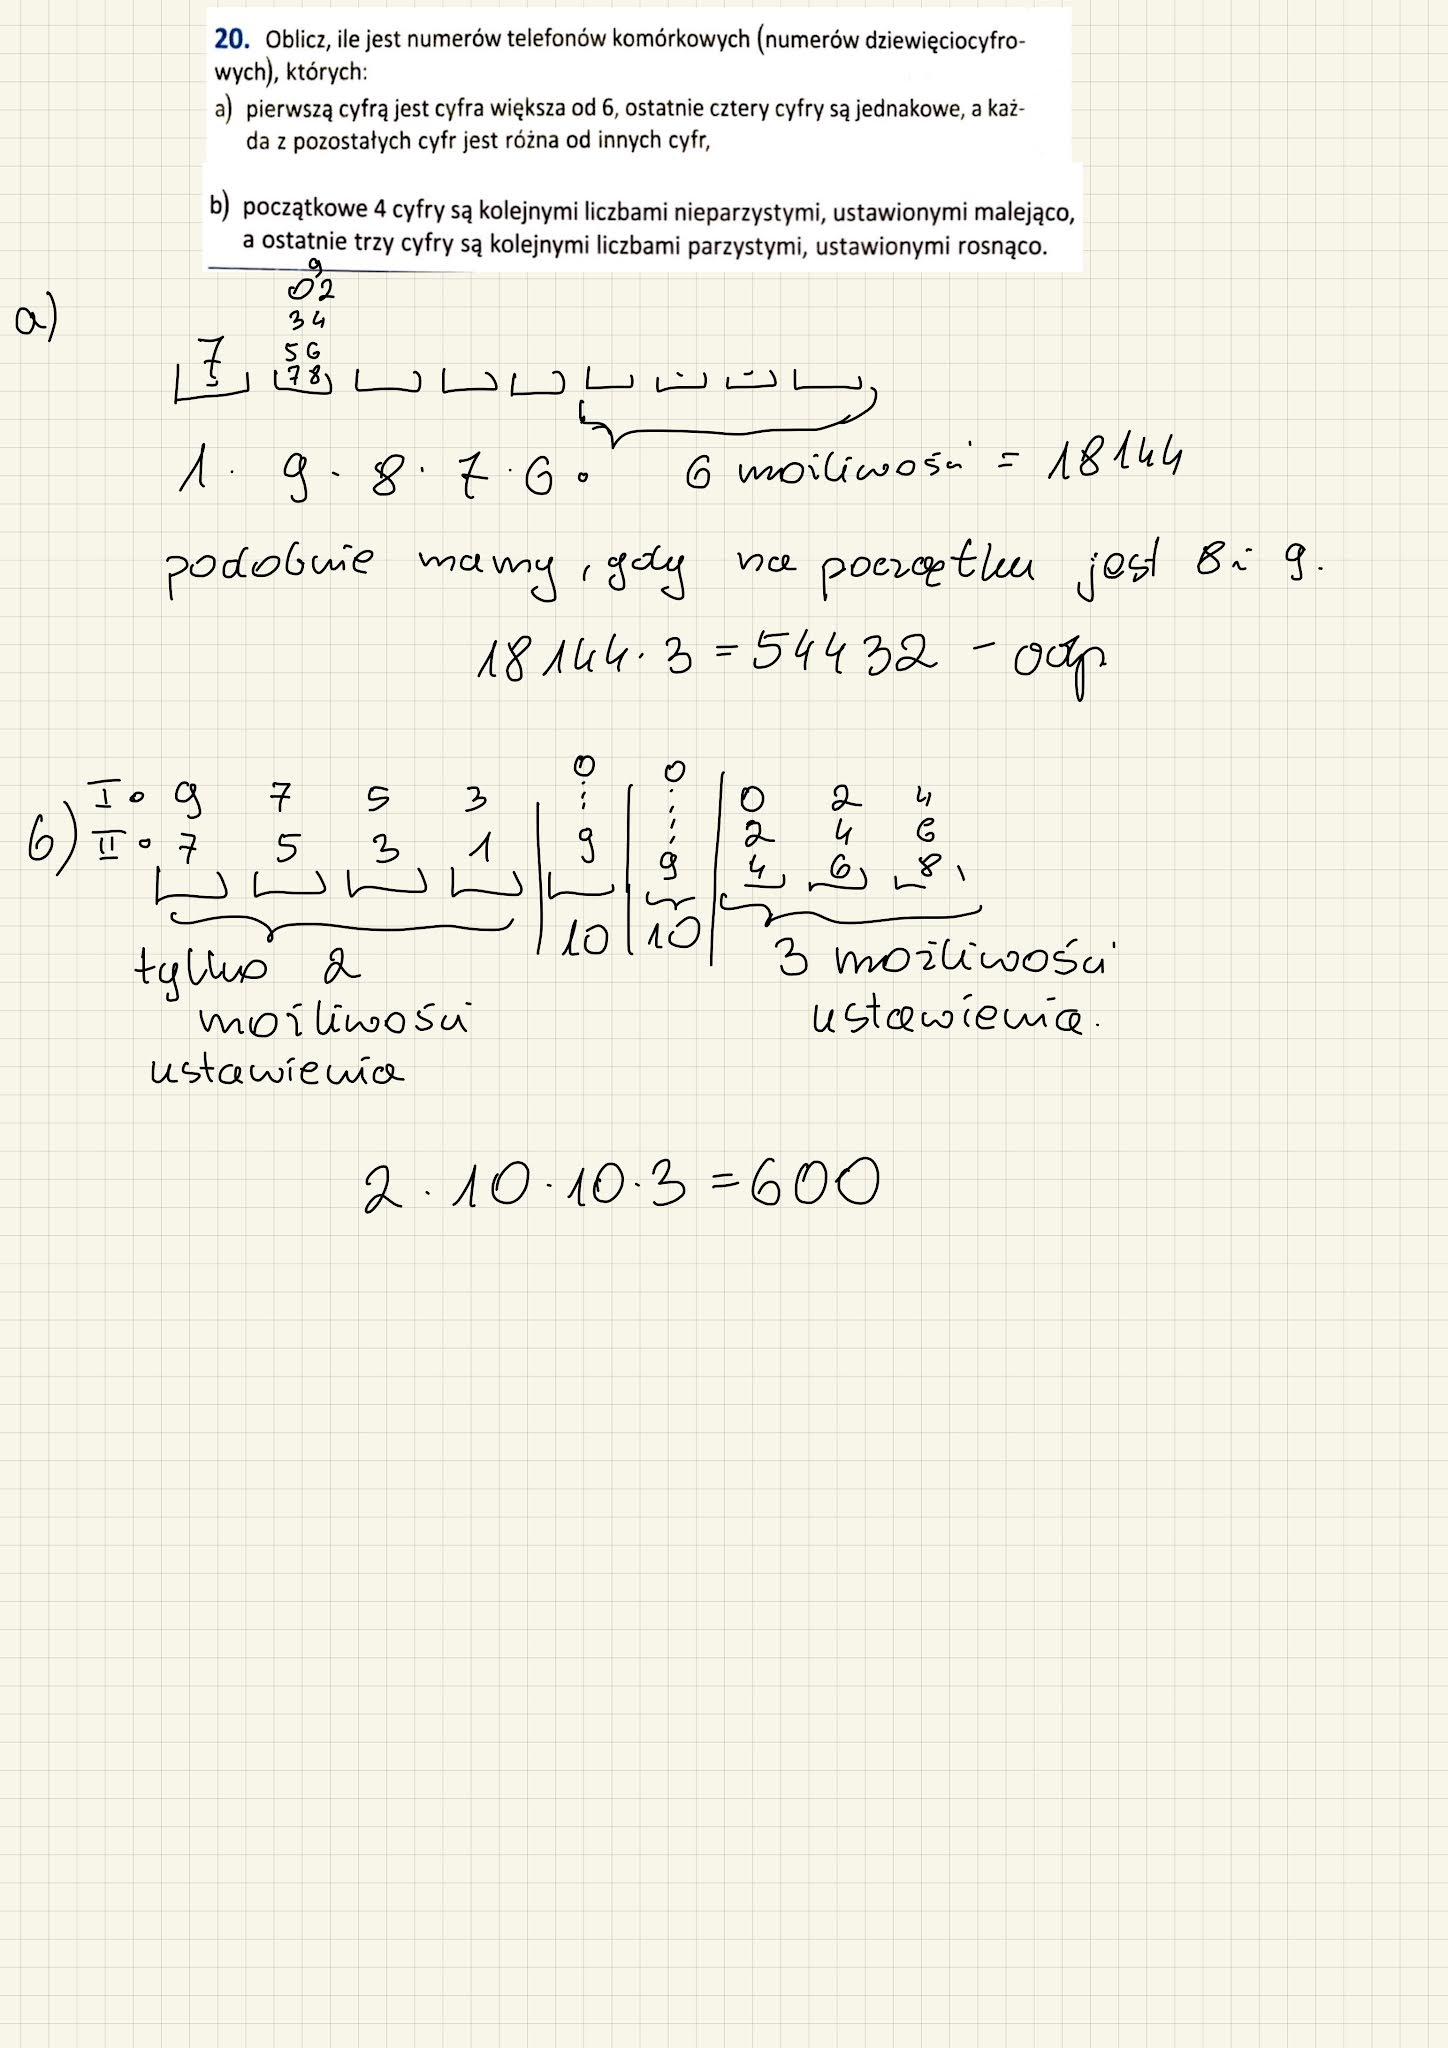 20. Oblicz, ile jest numerów telefonów komórkowych (numerów dziewięciocyfro-
wych), których:
a) pierwszą cyfrą jest cyfra większa od 6, ostatnie cztery cyfry są jednakowe, a każ-
da z pozostałych cyfr jest różna od innych cyfr,
b) początkowe 4 cyfry są kolejnymi liczbami nieparzystymi, ustawionymi malejąco,
a ostatnie trzy cyfry są kolejnymi liczbami parzystymi, ustawionymi rosnąco.
a)
9
0 2
3 4
7 5 6
7 8
1 · 9 · 8 · 7 · 6 · 6 możliwości = 18144
podobnie mamy, gdy na początku jest 8 i 9.
18144 · 3 = 54432 - odp
b)
I. 9 7 5 3 0 0 0 2 4
II. 7 5 3 1 9 9 2 4 6
4 6 8
10 10
tylko 2 3 możliwości
możliwości ustawienia.
ustawienia
2 · 10 · 10 · 3 = 600